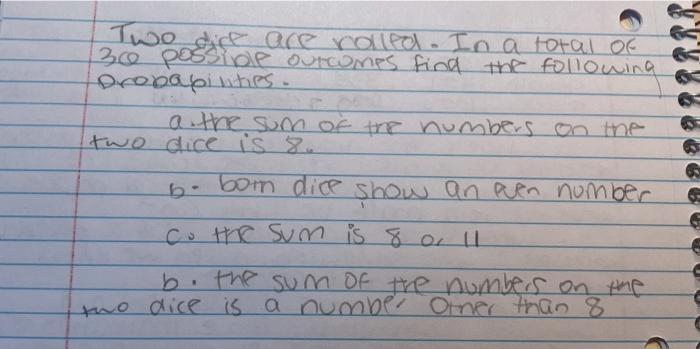 Two dice are rolled. In a total of
36 possible outcomes find the following
probabilities.
a. the sum of the numbers on the
two dice is 8.
b. both dice show an even number
c. the sum is 8 or 11
b. the sum of the numbers on the
two dice is a number other than 8